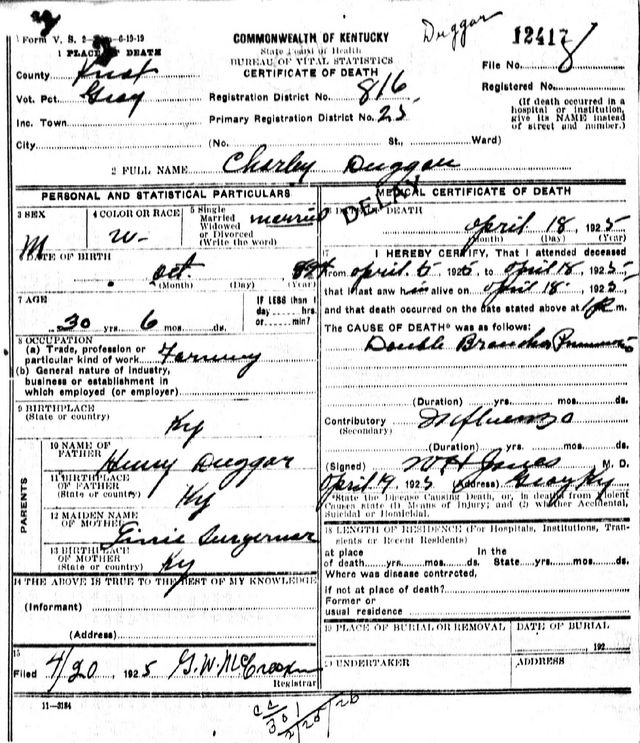 Form V. S. 6-19-19
COMMONWEALTH OF KENTUCKY
Duggar
12417
1 PLACE OF DEATH
State Board of Health
BUREAU OF VITAL STATISTICS
CERTIFICATE OF DEATH
File No.
County Knox
Registered No.
Vot. Pct. Gray
Registration District No. 816
(If death occurred in a
hospital or institution,
give its NAME instead
of street and number.)
Inc. Town
Primary Registration District No. 25
City
(No. St., Ward)
2 FULL NAME Charley Duggar
PERSONAL AND STATISTICAL PARTICULARS
3 SEX M
4 COLOR OR RACE W-
5 Single
Married
Widowed
or Divorced
(Write the word)
married
DATE OF BIRTH
Oct.
(Month) (Day) (Year)
7 AGE
30 yrs. 6 mos. ds.
IF LESS than 1
day hrs.
or min?
8 OCCUPATION
(a) Trade, profession or
particular kind of work Farming
(b) General nature of industry,
business or establishment in
which employed (or employer)
9 BIRTHPLACE
(State or country) Ky
PARENTS
10 NAME OF
FATHER Henry Duggar
11 BIRTHPLACE
OF FATHER
(State or country) Ky
12 MAIDEN NAME
OF MOTHER
13 BIRTHPLACE
OF MOTHER
(State or country) Ky
14 THE ABOVE IS TRUE TO THE BEST OF MY KNOWLEDGE
(Informant)
(Address)
15
Filed 4/20, 1925 G. W. McCrookin
Registrar
11-3184
MEDICAL CERTIFICATE OF DEATH
DELAY
DATE OF DEATH
April 18, 1925
(Month) (Day) (Year)
I HEREBY CERTIFY, That I attended deceased
from April 5, 1925, to April 18, 1925,
that I last saw him alive on April 18, 1925,
and that death occurred on the date stated above at m.
The CAUSE OF DEATH* was as follows:
Double Broncho Pneumonia
(Duration) yrs. mos. ds.
Contributory Influenza
(Secondary)
(Duration) yrs. mos. ds.
(Signed) W H Jones M. D.
April 19, 1925 (Address) Gray Ky
*State the Disease Causing Death, or, in deaths from Violent
Causes state (1) Means of Injury; and (2) whether Accidental,
Suicidal or Homicidal.
18 LENGTH OF RESIDENCE (For Hospitals, Institutions, Tran-
sients or Recent Residents)
at place In the
of death yrs. mos. ds. State yrs. mos. ds.
Where was disease contrected,
if not at place of death?
Former or
usual residence
19 PLACE OF BURIAL OR REMOVAL
DATE OF BURIAL
192
UNDERTAKER
ADDRESS
301
2/25/26